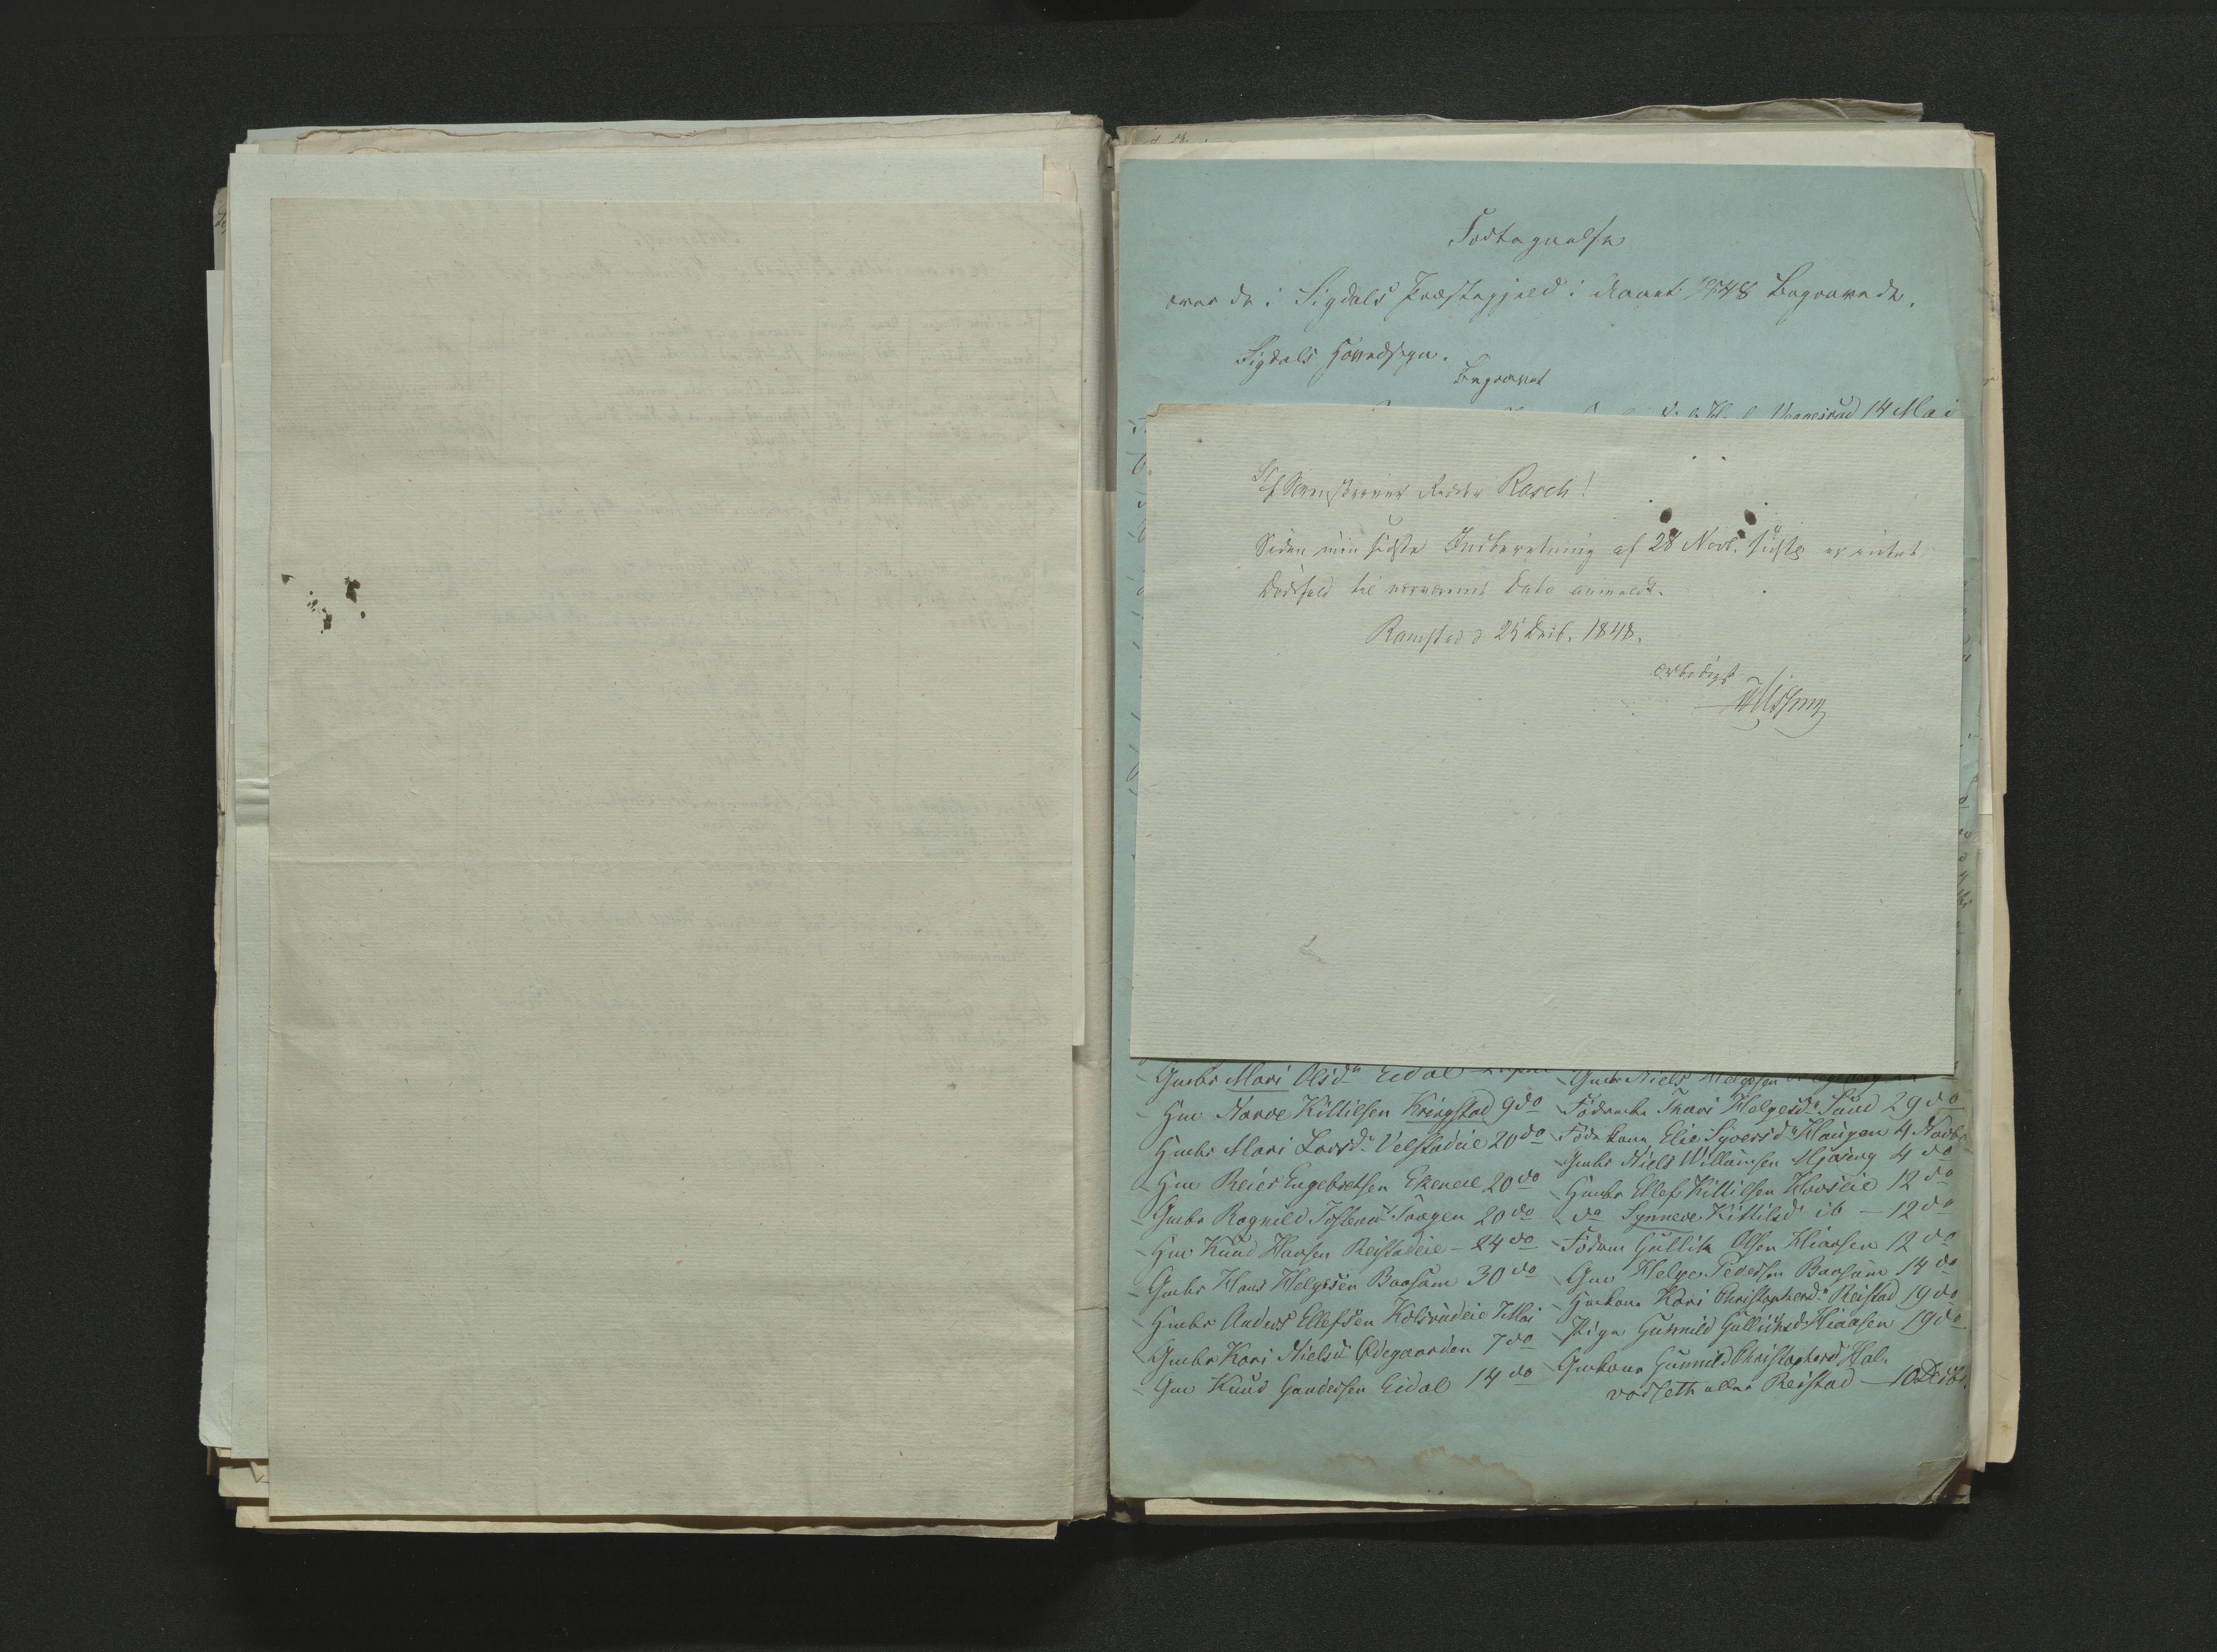 Fortegnelse
over de i Sigdals Præstegjeld i Aaret 1848 Begravede.
Sigdals Hovedsogn.
Begravet
14 Mai
Rasch!
Siden min sidste Indberetning af 28 Novb. sidstl. er intet
Dødsfald til nærværende Dato anmeldt.
Ramstad d 25 Decb. 1848.
ærbødigst
Gmbr Mari Olsdr Eidal
Hm Narve Kittilsen Kringstad 9 do
Hmbr Mari Larsdr Velstadeie 20 do
Hm Reier Engebretsen Ekeneie 20 do
Gmbr Ragnild Tostensdr Traagen 20 do
Hm Knud Hansen Reistadeie - 24 do
Gmbr Hans Helgesen Baasum 30 do
Hmbr Anders Ellefsen Kolsrudeie Mai
Gmbr Kari Nielsdr Ødegaarden 7 do
Gm Knud Gundersen Eidal 14 do
Gmbr Niels Helgesen
Födembr Thari Helgesdr Saud 29 do
Födekone Elie Syversdr Haugen 4 Novbr
Gmbr Niels Willumsen Mjøseng 4 do
Hmbr Ellef Kittilsen Hovseie 12 do
do Synneve Kittilsdr ib - 12 do
Födem Gullik Olsen Kliaasen 12 do
Gm Helge Pedersen Baasum 14 do
Hmkone Kari Christophersdr Reistad 19 do
Pige Gunnild Gulliksdr Kliaasen 19 do
Gmkone Gunnild Christophersdr Hal-
vorseth eller Reistad - 10 Decbr.